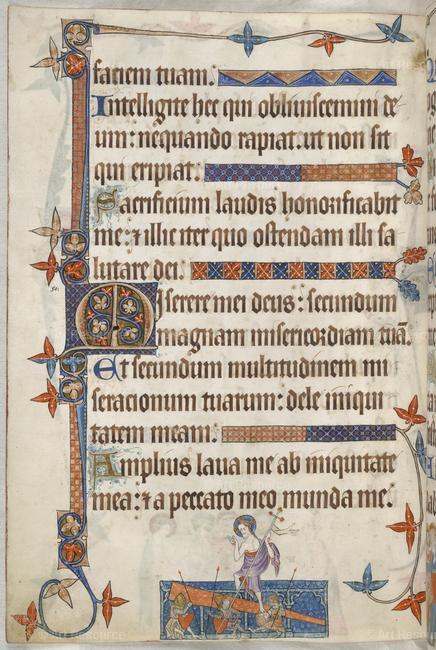 faciem tuam.
Intelligite hec qui obliuiscimini de
um: nequando rapiat. ut non sit
qui eripiat.
Sacrificium laudis honorificabit
me: ⁊ illic iter quo ostendam illi sa
lutare dei.
Miserere mei deus: secundum
magnam misericordiam tuā.
Et secundum multitudinem mi
seracionum tuarum: dele iniqui
tatem meam.
Amplius laua me ab iniquitate
mea: ⁊ a peccato meo munda me.
Art Resource